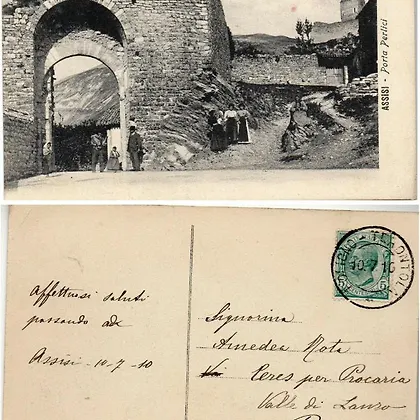 ASSISI - Porta Perlici
Affettuosi saluti
passando ad
Assisi - 10-7-10
Signorina
Amedea Rota
Ceres per Procaria
Valle di Lanzo